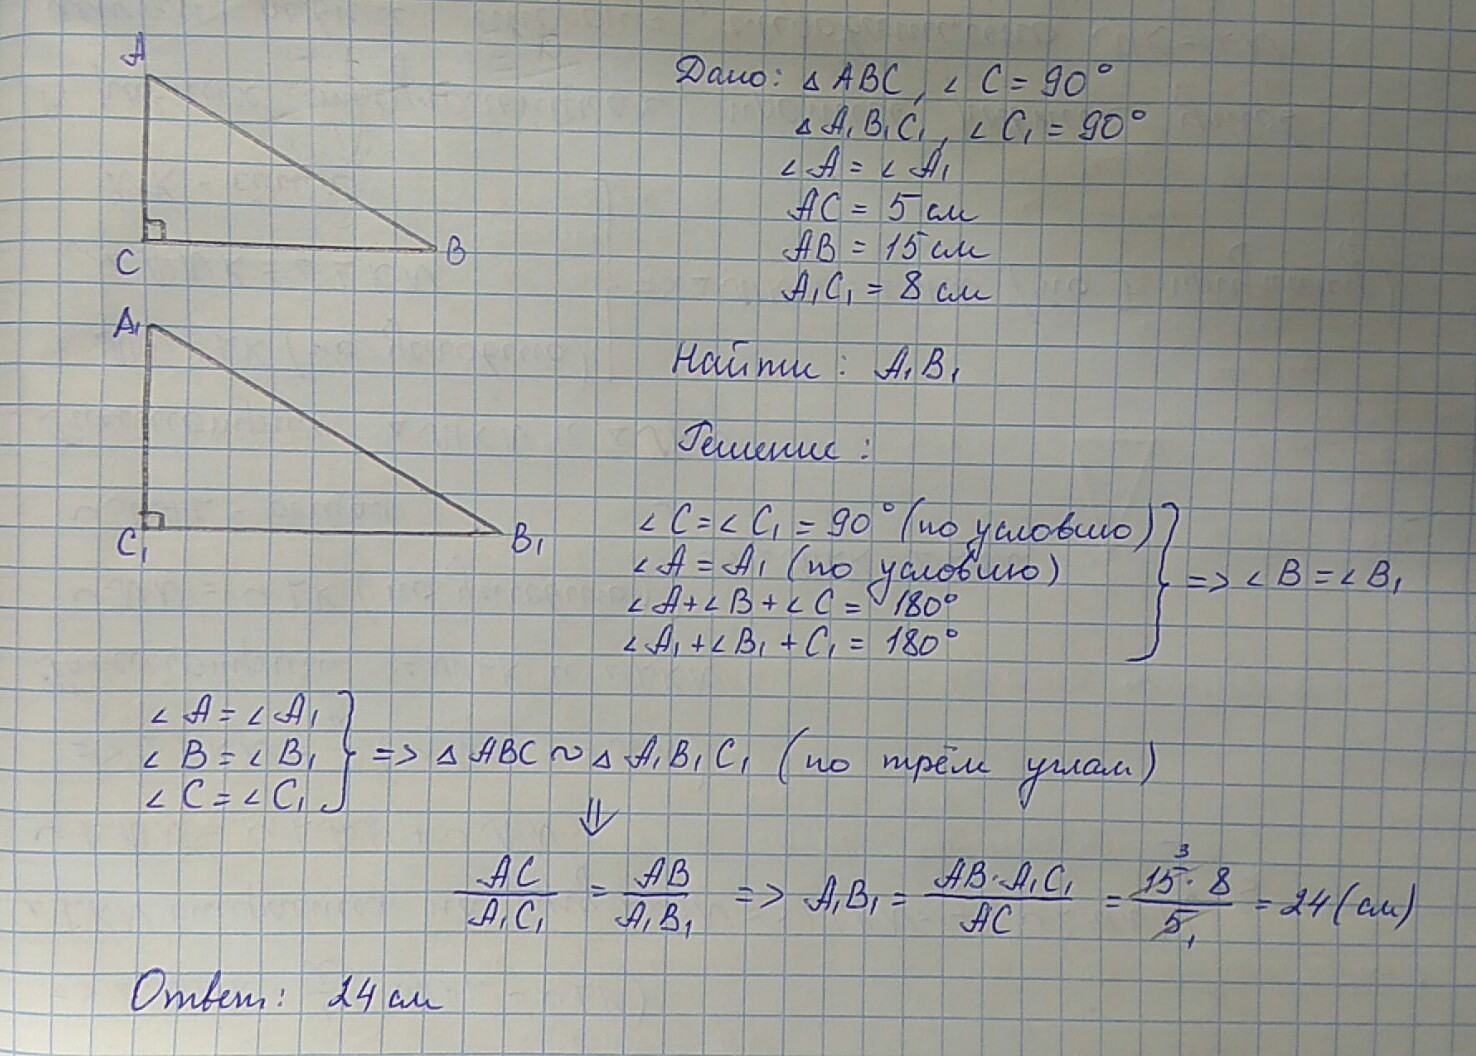 A
C
B
Дано: △ ABC, ∠ C = 90°
△ A₁B₁C₁, ∠ C₁ = 90°
∠ A = ∠ A₁
AC = 5 см
AB = 15 см
A₁C₁ = 8 см
A₁
C₁
B₁
Найти: A₁B₁
Решение:
∠ C = ∠ C₁ = 90° (по условию)
∠ A = A₁ (по условию)
∠ A + ∠ B + ∠ C = 180°
∠ A₁ + ∠ B₁ + C₁ = 180°
} => ∠ B = ∠ B₁
∠ A = ∠ A₁
∠ B = ∠ B₁
∠ C = ∠ C₁
} => △ ABC ~ △ A₁B₁C₁ (по трём углам)
⇓
AC/A₁C₁ = AB/A₁B₁ => A₁B₁ = AB·A₁C₁/AC = 15³·8/5₁ = 24 (см)
Ответ: 24 см